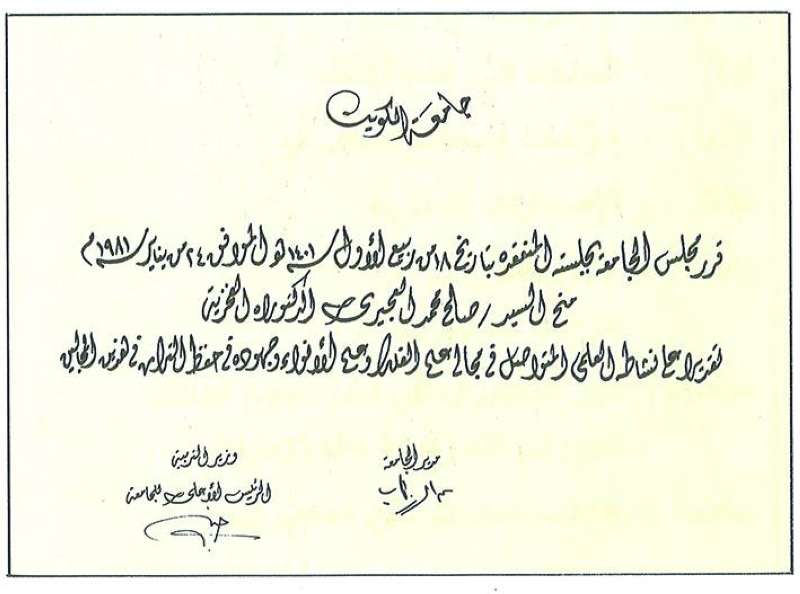 جامعة الكويت
قرر مجلس الجامعة بجلسته المنعقدة بتاريخ ١٨ من ربيع الأول سنة ١٤٠١ هـ الموافق ٢٤ من يناير سنة ١٩٨١ م
منح السيد / صالح محمد العجيري الدكتوراه الفخرية
تقديرا على نشاطه العلمي المتواصل في مجال علم الفلك وعلم الأنواء وجهوده في حفظ التراث في هذين المجالين
مدير الجامعة
وزير التربية
الرئيس الأعلى للجامعة